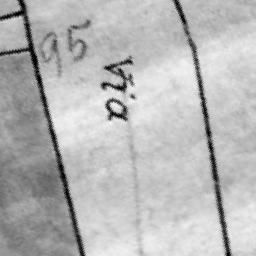 95
Via